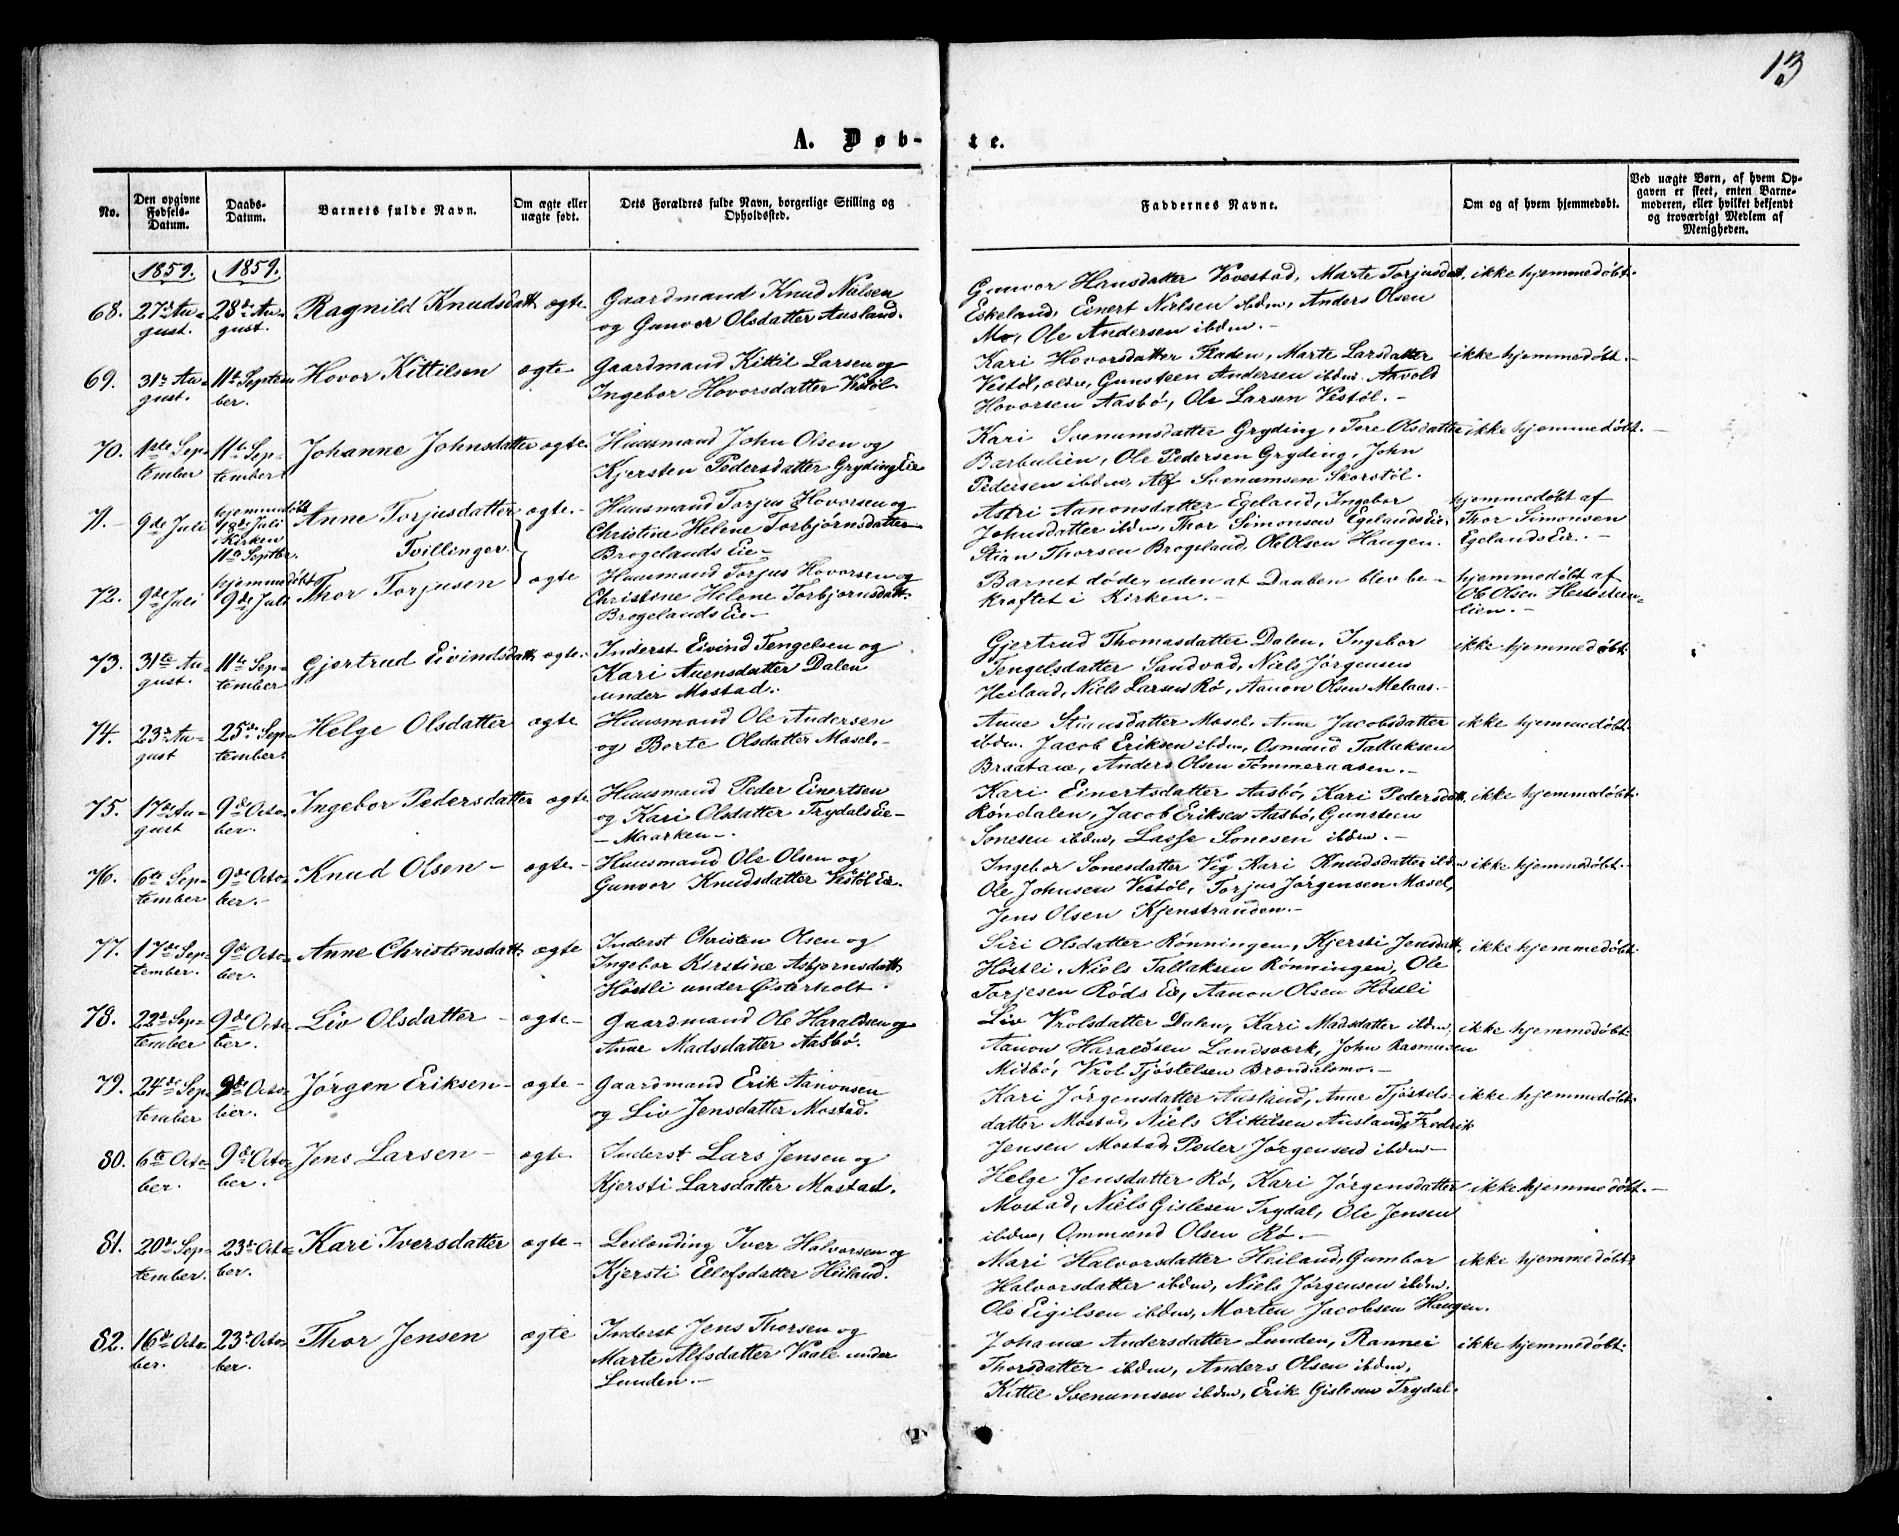 13
A. Døb-
te.
No.
Den opgivne Fødsels-Datum.
Daabs-Datum.
Barnets fulde Navn.
Om ægte eller uægte født.
Dets Forældres fulde Navn, borgerlige Stilling og Opholdssted.
Faddernes Navne.
Om og af hvem hjemmedøbt.
Ved uægte Børn, af hvem Op-
gaven er skeet, enten Barne-
moderen, eller hvilket bekjendt
og troværdigt Medlem af
Menigheden.
1859. 1859.
68. 27de Au-
gust.
28de Au-
gust.
Ragnild Knudsdatt
ægte
Gaardmand Knud Nielsen
og Gunvor Olsdatter Ausland.
Gunvor Hansdatter Vovestad, Marte Torjusdat.
Eskeland, Einert Nielsen ibdm, Anders Olsen
Mo, Ole Andersen ibdm.-
ikke hjemmedøbt.
69. 31te Au-
gust.
11te Septem
ber.
Hovor Kittilsen
ægte
Gaardmand Kittil Larsen og
Ingebor Hovorsdatter Vestøl
Kari Hovorsdatter Fladen, Marte Larsdatter
Vestøl, ældre, Gunsteen Andersen ibdm. Anvold
Hovorsen Aasbø, Ole Larsen Vestøl.-
ikke hjemmedøbt.-
70. 1ste Sep-
tember
11te Sep-
tember
Johanne Johnsdatter
ægte
Huusmand John Olsen og
Kjersten Pedersdatter Gryding Eie
Kari Svenumsdatter Gryding, Tore Olsdatter
Barbulien, Ole Pedersen Gryding, John
Pedersen ibdm, Alf Svenumsen Skorstøl.
ikke hjemmedøbt.-
71.- 9de Juli
hjemmedøbt
18de Juli
i Kirken
11te Septbr.
Anne Torjusdatter
Tvillinger.
ægte.-
Huusmand Torjus Hovorsen og
Christine Helene Torbjørnsdatter
Brogelands Eie-
Astri Aanonsdatter Egeland, Ingebor
Johnsdatter ibdm, Thor Simonsen Egelands Eie,
Stian Thorsen Brogeland, Ole Olsen Haugen.
hjemmedøbt af
Thor Simonsen
Egelands Eie.-
72. 9de Juli
hjemmedøbt
9de Juli
Thor Torjusen
ægte
Huusmand Torjus Hovorsen og
Christine Helene Torbjørnsdatt.
Brogelands Eie-
Barnet døde uden at Daaben blev be-
kræftet i Kirken.-
hjemmedøbt af
Ob Olsen
lien.-
73. 31te Au-
gust.
11te Sep-
tember
Gjertrud Eivindsdatt
ægte.
Inderst Eivind Tengelsen og
Kari Auensdatter Dalen
under Mostad.
Gjertrud Thomasdatter Dalen, Ingebor
Tengelsdatter Sandvad, Niels Jørgensen
Heiland, Niels Larsen Rø, Aanon Olsen Melaas.-
ikke hjemmedøbt.
74. 23de Au-
gust
25de Sep-
tember.
Helge Olsdatter
ægte
Huusmand Ole Andersen
og Borte Olsdatter Mosel.-
Anne Stiansdatter Mosel, Anne Jacobsdatter
ibdm. Jacob Eriksen ibdm, Osmund Tallaksen
Braatane, Anders Olsen Tømmeraasen.-
ikke hjemmedøbt.
75. 17de Au-
gust
9de Octo-
ber.
Ingebor Pedersdatter
ægte
Huusmand Peder Einertsen
og Kari Olsdatter Trydals Eie-
- Maarken-.
Kari Einertsdatter Aasbø, Kari Pedersdat.
Røndalen, Jacob Eriksen Aasbø, Gunsteen
Sonesen ibdm, Lasse Sonesen ibdm.-
ikke hjemmedøbt.
76. 6te Sep-
tember
9de Octo-
ber.-
Knud Olsen-
ægte-
Huusmand Ole Olsen og
Gunvor Knudsdatter Vestøl Eie.
Ingebor Sonesdatter Vig, Kari Knudsdatter ibdm
Ole Johnsen Vestøl, Torjus Jørgensen Mosel,
Jens Olsen Kjenstranden.-
ikke hjemmedøbt.-
77. 17de Sep-
tember.
9de Octo-
ber.
Anne Christensdatt.
ægte
Inderst Christen Olsen og
Ingebor Kirstine Asbjørnsdatt.
Høstli under Østerholt.
Siri Olsdatter Rønningen, Kjersti Jensdatt.
Høstli, Niels Tallaksen Rønningen, Ole
Torjesen Røds Eie, Aanon Olsen Høstli
ikke hjemmedøbt.
78. 22de Sep-
tember
9de Octo-
ber.
Liv Olsdatter-
ægte-
Gaardmand Ole Haraldsen og
Anne Madsdatter Aasbø.
Liv Vrolsdatter Dalen, Kari Madsdatter ibdm.
Aanon Haraldsen Landsverk, John Rasmusen
Midbø, Vrol Tjøstelsen Brændalsmo.-
ikke hjemmedøbt.
79. 24de Sep-
tember
9de Octo-
ber.
Jørgen Eriksen-
ægte-
Gaardmand Erik Aanonsen
og Liv Jensdatter Mostad.
Kari Jørgensdatter Ausland, Anne Tjøstels-
datter Mostad, Niels Kittilsen Ausland, Fredrik
Jensen Mostad, Peder Jørgensen ibdm-
ikke hjemmedøbt.
80. 6te Octo-
ber.
9de Octo-
ber.
Jens Larsen-
ægte
Inderst Lars Jensen og
Kjersti Larsdatter Mostad.
Helge Jensdatter Rø, Kari Jørgensdatter
Mostad, Niels Gislesen Trydal, Ole Jensen
ibdm, Ommund Olsen Rø.-
ikke hjemmedøbt.-
81. 20de Sep-
tember.
23de Octo-
ber.
Kari Iversdatter
ægte-
Leilænding Iver Halvorsen og
Kjersti Elefsdatter Heiland.
Mari Halvorsdatter Heiland, Gumbor
Halvorsdatter ibdm, Niels Jørgensen ibdm.
Ole Eigilsen ibdm, Morten Jacobsen Haugen.
ikke hjemmedøbt.
82. 16de Octo-
ber.
23de Octo-
ber.
Thor Jensen
ægte
Inderst Jens Thorsen og
Marte Alfsdatter Vaale under
Lunden.-
Johanne Andersdatter Lunden, Rannei
Thorsdatter ibdm, Anders Olsen ibdm,
Kittil Svenumsen ibdm, Erik Gislesen Trydal.
ikke hjemmedøbt.